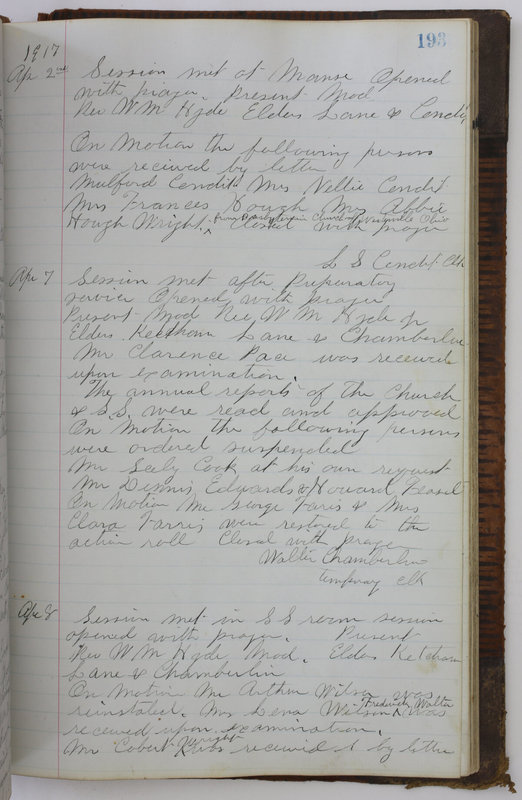 193
1917
Apr 2nd Session met at Manse Opened
with prayer. Present Mod
Rev W M Hyde Elders Lane & Condit
On Motion the following persons
were received by letter
Mulford Condit Mrs Nellie Condit
Mrs Frances Hough Mrs Abbie
Hough Wright. ^ from Presbyterian Church Ohio Closed with prayer
L S Condit Clk
Apr 7 Session met after Preparatory
service Opened with prayer
Present Mod Rev W M Hyde Jr
Elders Ketcham Lane & Chamberlin
Mr Clarence Pace was received
upon examination.
The annual reports of the Church
& S.S. were read and approved
On Motion the following persons
were ordered suspended
Mr Seely Cook at his own request
Mr Dennis Edwards & Howard
On Motion Mr George Faris & Mrs
Clara Farris were restored to the
action roll Closed with prayer
Walter Chamberlin
temporay Clk
Apr 8 Session met in S S room session
opened with prayer. Present
Rev W M Hyde Mod. Elders Ketcham
Lane & Chamberlin
On Motion Mr Arthur Wilson was
reinstated. Mrs Lena Wilson ^ Frederick Walter was
received upon examination.
Mr Wright received by letter